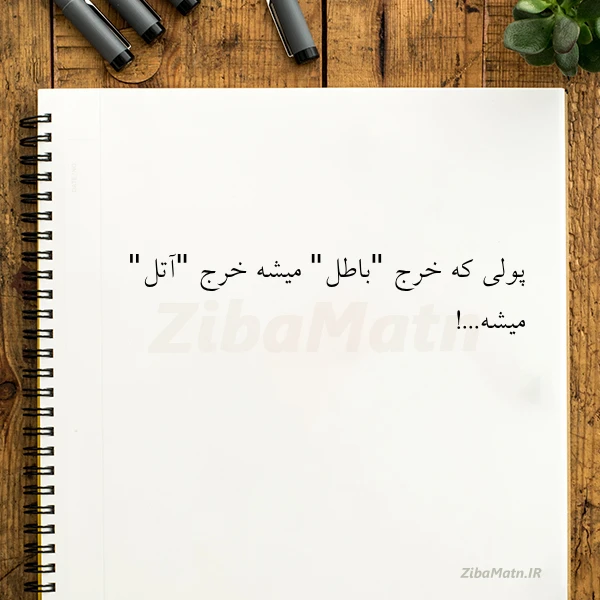 پولی که خرج "باطل" میشه خرج "آتل"
میشه...!
ZibaMatn
ZibaMatn.IR